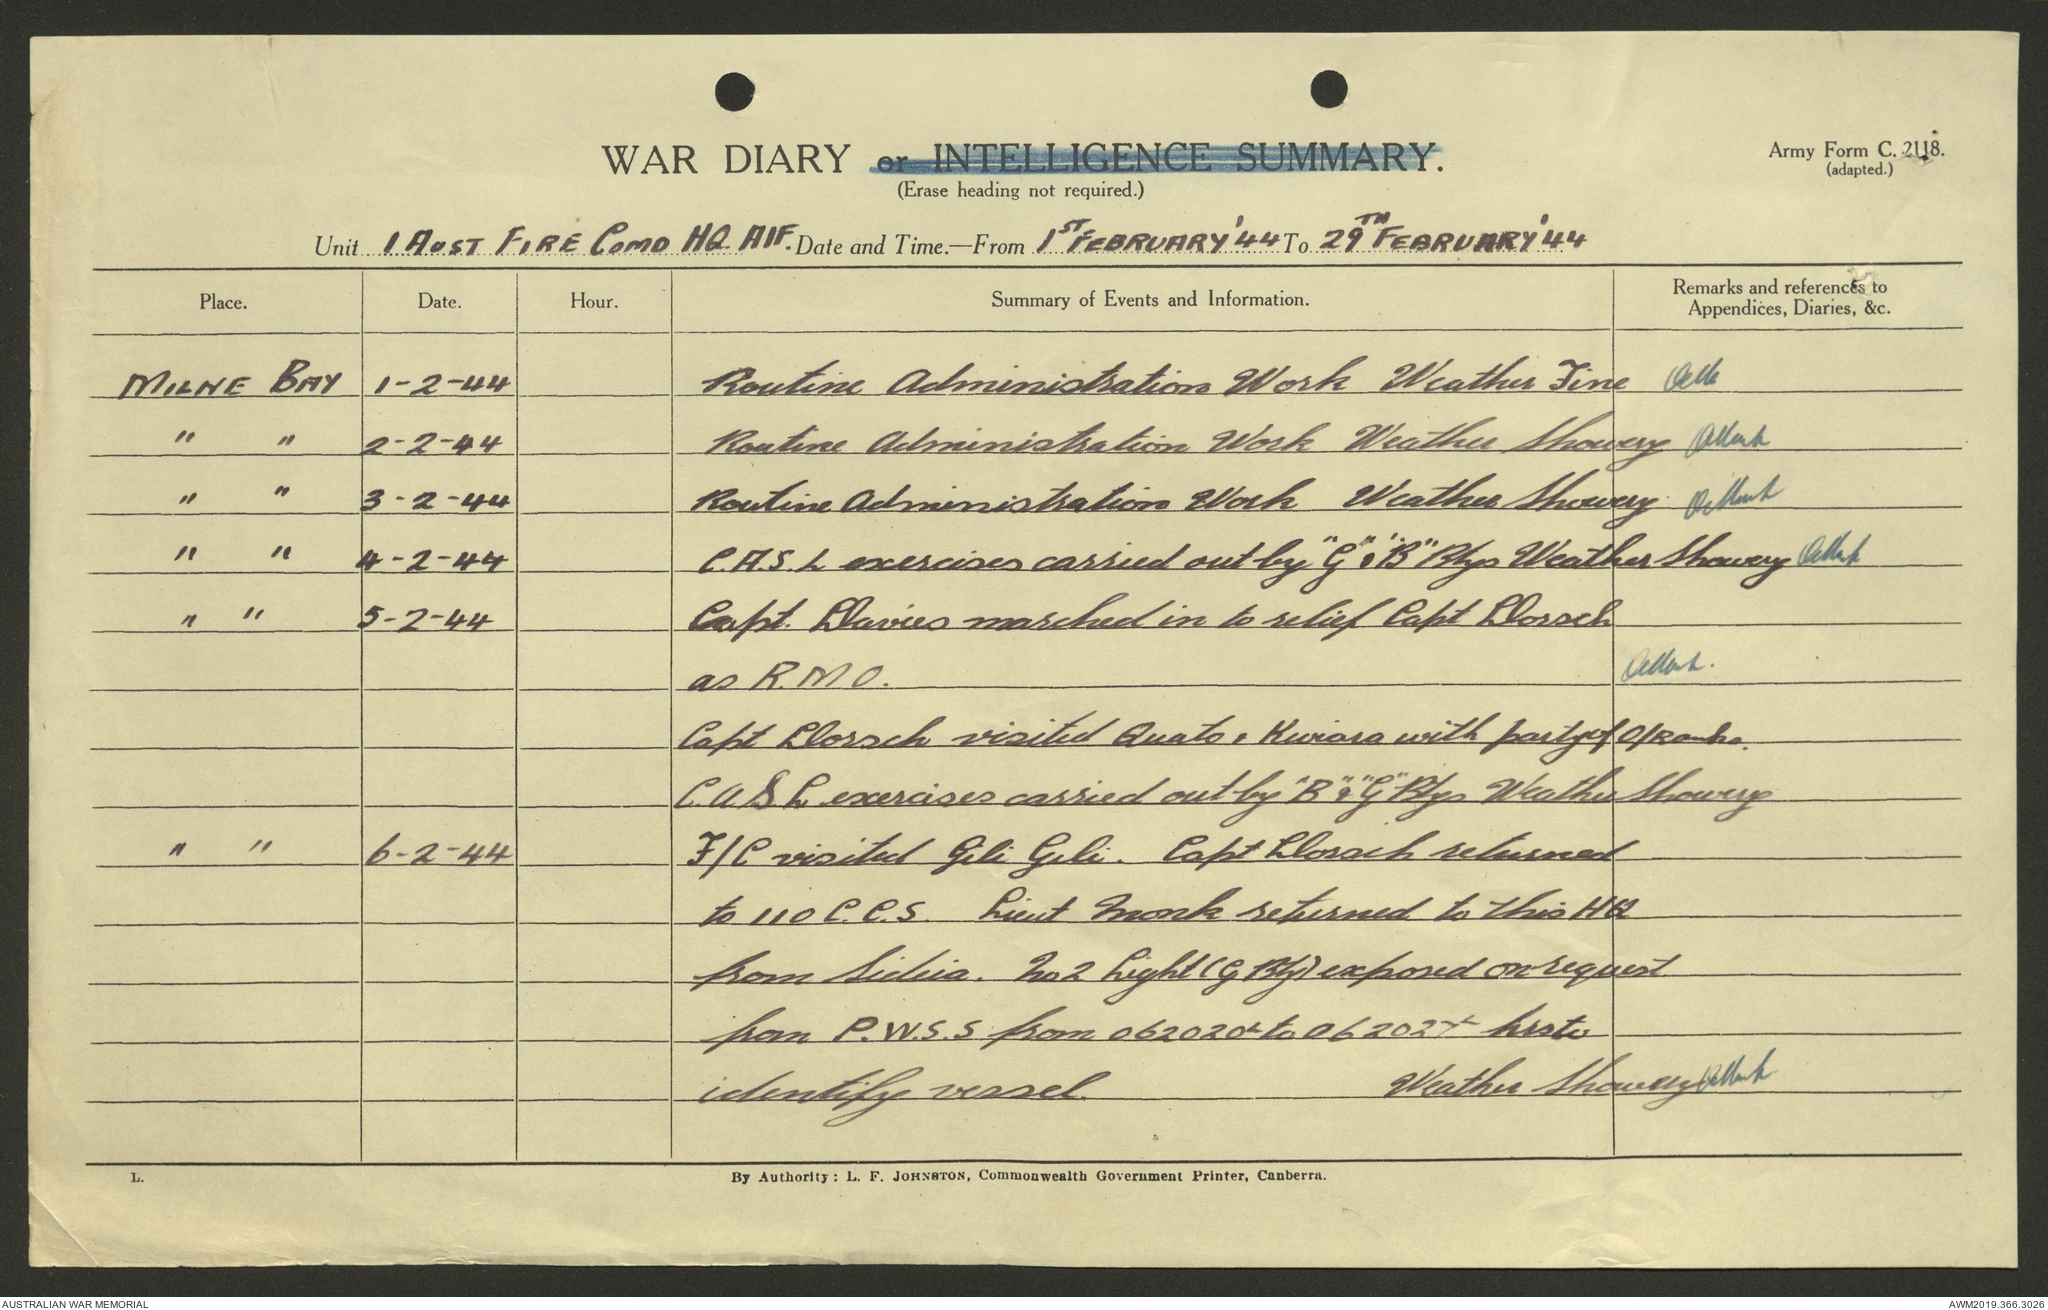 WAR DIARY or INTELLIGENCE SUMMARY.
(Erase heading not required.)
Army Form C. 2118.
(adapted.)
Unit 1 AUST FIRE COMD HQ AIF. Date and Time.—From 1ST FEBRUARY '44 To 29TH FEBRUARY '44
Place. Date. Hour. Summary of Events and Information. Remarks and references to
Appendices, Diaries, &c.
MILNE BAY 1-2-44 Routine Administration Work Weather Fine
" " 2-2-44 Routine Administration Work Weather Showery
" " 3-2-44 Routine Administration Work Weather Showery
" " 4-2-44 C.A.S.L exercises carried out by "G" & "B" Btys Weather Showery
" " 5-2-44 Capt. Davies marched in to relief Capt Dorsch
as R.M.O.
Capt Dorsch visited Quato & with party of O/Ranks.
C.A.S.L exercises carried out by "B" & "G" Btys Weather Showery
" " 6-2-44 F/C visited Gili Gili. Capt Dorsch returned
to 110 C.C.S. Lieut Monk returned to this HQ
from Sideia. No 2 Light (G Bty) exposed on request
from P.W.S.S from to hrs to
identify vessel. Weather Showery
L.
By Authority: L. F. JOHNSTON, Commonwealth Government Printer, Canberra.
AUSTRALIAN WAR MEMORIAL
AWM2019.366.3026